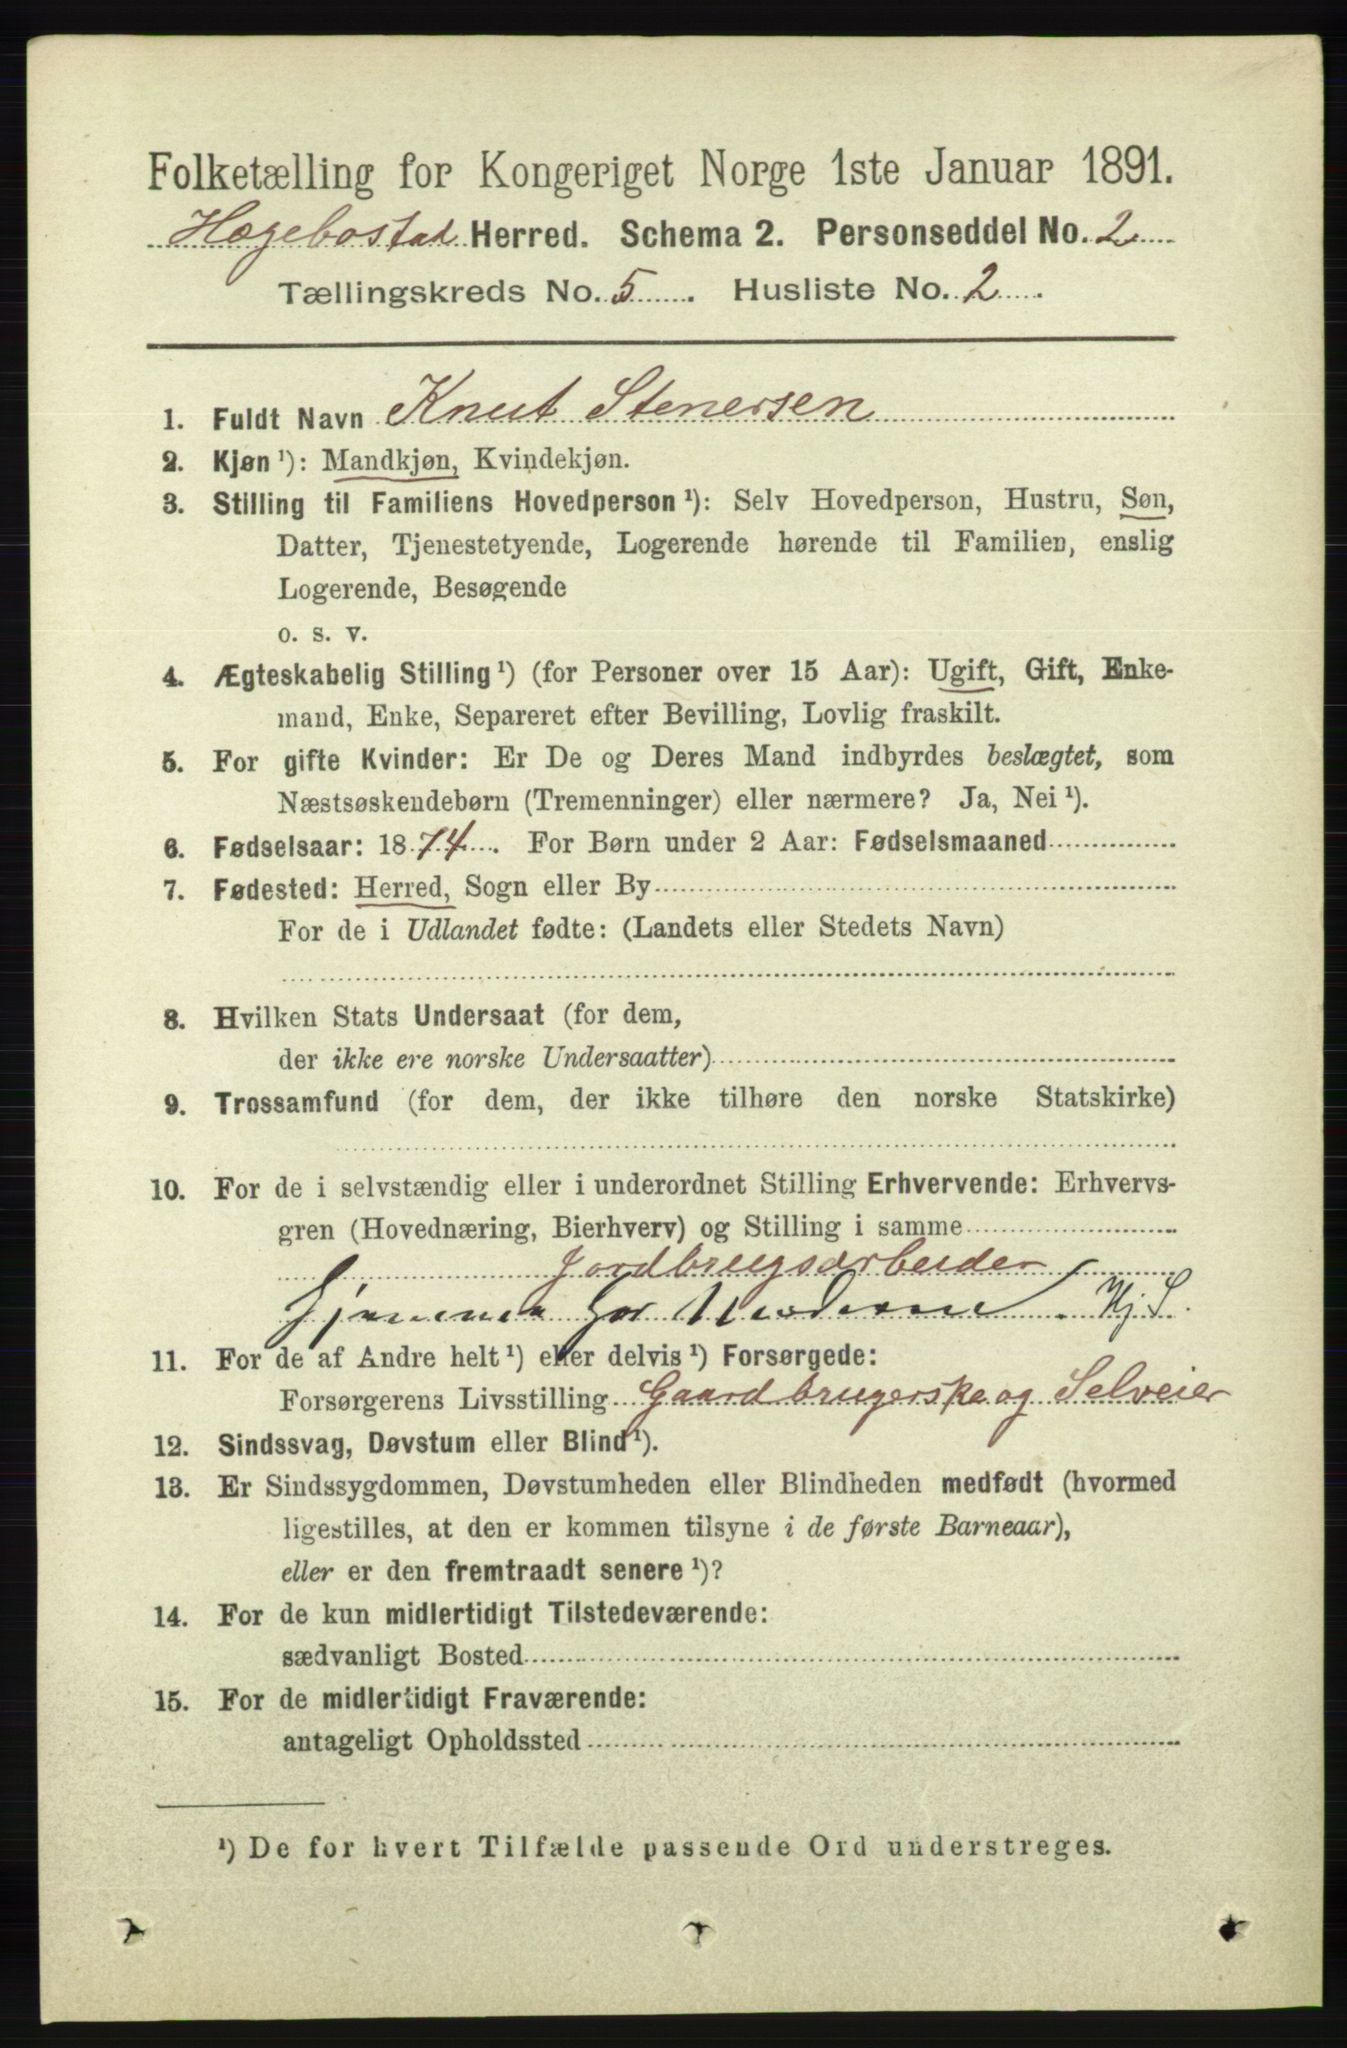 Folketælling for Kongeriget Norge 1ste Januar 1891.
Hægebostad Herred. Schema 2. Personseddel No. 2
Tællingskreds No. 5. Husliste No. 2.
1. Fuldt Navn Knut Stenersen
2. Kjøn ¹): Mandkjøn, Kvindekjøn.
3. Stilling til Familiens Hovedperson ¹): Selv Hovedperson, Hustru, Søn,
Datter, Tjenestetyende, Logerende hørende til Familien, enslig
Logerende, Besøgende
o. s. v.
4. Ægteskabelig Stilling ¹) (for Personer over 15 Aar): Ugift, Gift, Enke-
mand, Enke, Separeret efter Bevilling, Lovlig fraskilt.
5. For gifte Kvinder: Er De og Deres Mand indbyrdes beslægtet, som
Næstsøskendebørn (Tremenninger) eller nærmere? Ja, Nei ¹).
6. Fødselsaar: 1874. For Børn under 2 Aar: Fødselsmaaned
7. Fødested: Herred, Sogn eller By
For de i Udlandet fødte: (Landets eller Stedets Navn)
8. Hvilken Stats Undersaat (for dem,
der ikke ere norske Undersaatter)
9. Trossamfund (for dem, der ikke tilhøre den norske Statskirke)
10. For de i selvstændig eller i underordnet Stilling Erhvervende: Erhvervs-
gren (Hovednæring, Bierhverv) og Stilling i samme
Jordbrugsarbeider
Hjemme hos Moderen. Hj. S.
11. For de af Andre helt ¹) eller delvis ¹) Forsørgede:
Forsørgerens Livsstilling Gaardbrugerske og Selveier
12. Sindssvag, Døvstum eller Blind ¹).
13. Er Sindssygdommen, Døvstumheden eller Blindheden medfødt (hvormed
ligestilles, at den er kommen tilsyne i de første Barneaar),
eller er den fremtraadt senere ¹)?
14. For de kun midlertidigt Tilstedeværende:
sædvanligt Bosted
15. For de midlertidigt Fraværende:
antageligt Opholdssted
¹) De for hvert Tilfælde passende Ord understreges.